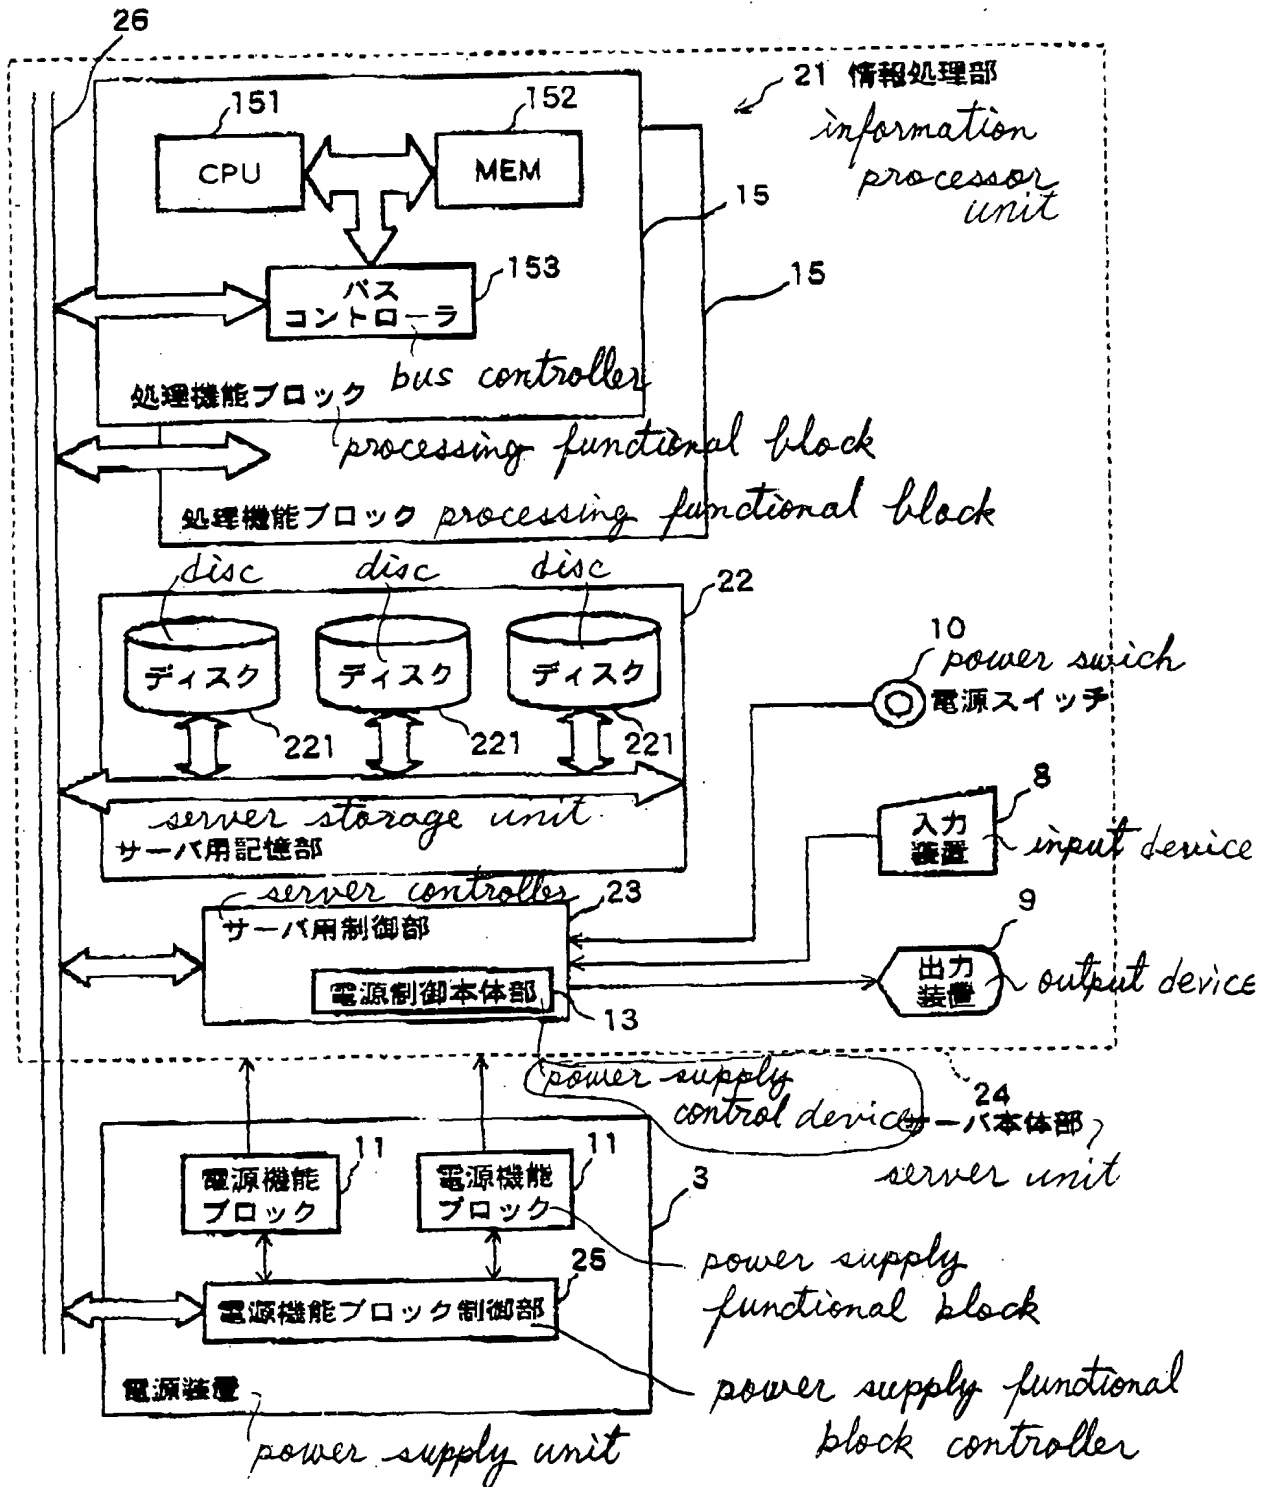 26
21 情報処理部
information
processor
unit
151
152
CPU
MEM
15
15
153
バス
コントローラ
bus controller
処理機能ブロック
processing functional block
処理機能ブロック processing functional block
disc
disc
disc
22
ディスク
ディスク
ディスク
221
221
221
10
power swich
電源スイッチ
server storage unit
サーバ用記憶部
8
入力
装置
input device
server controller
23
サーバ用制御部
電源制御本体部
13
9
出力
装置
output device
power supply
control device
24
サーバ本体部
server unit
11
11
電源機能
ブロック
電源機能
ブロック
3
power supply
functional block
25
電源機能ブロック制御部
電源装置
power supply functional
block controller
power supply unit